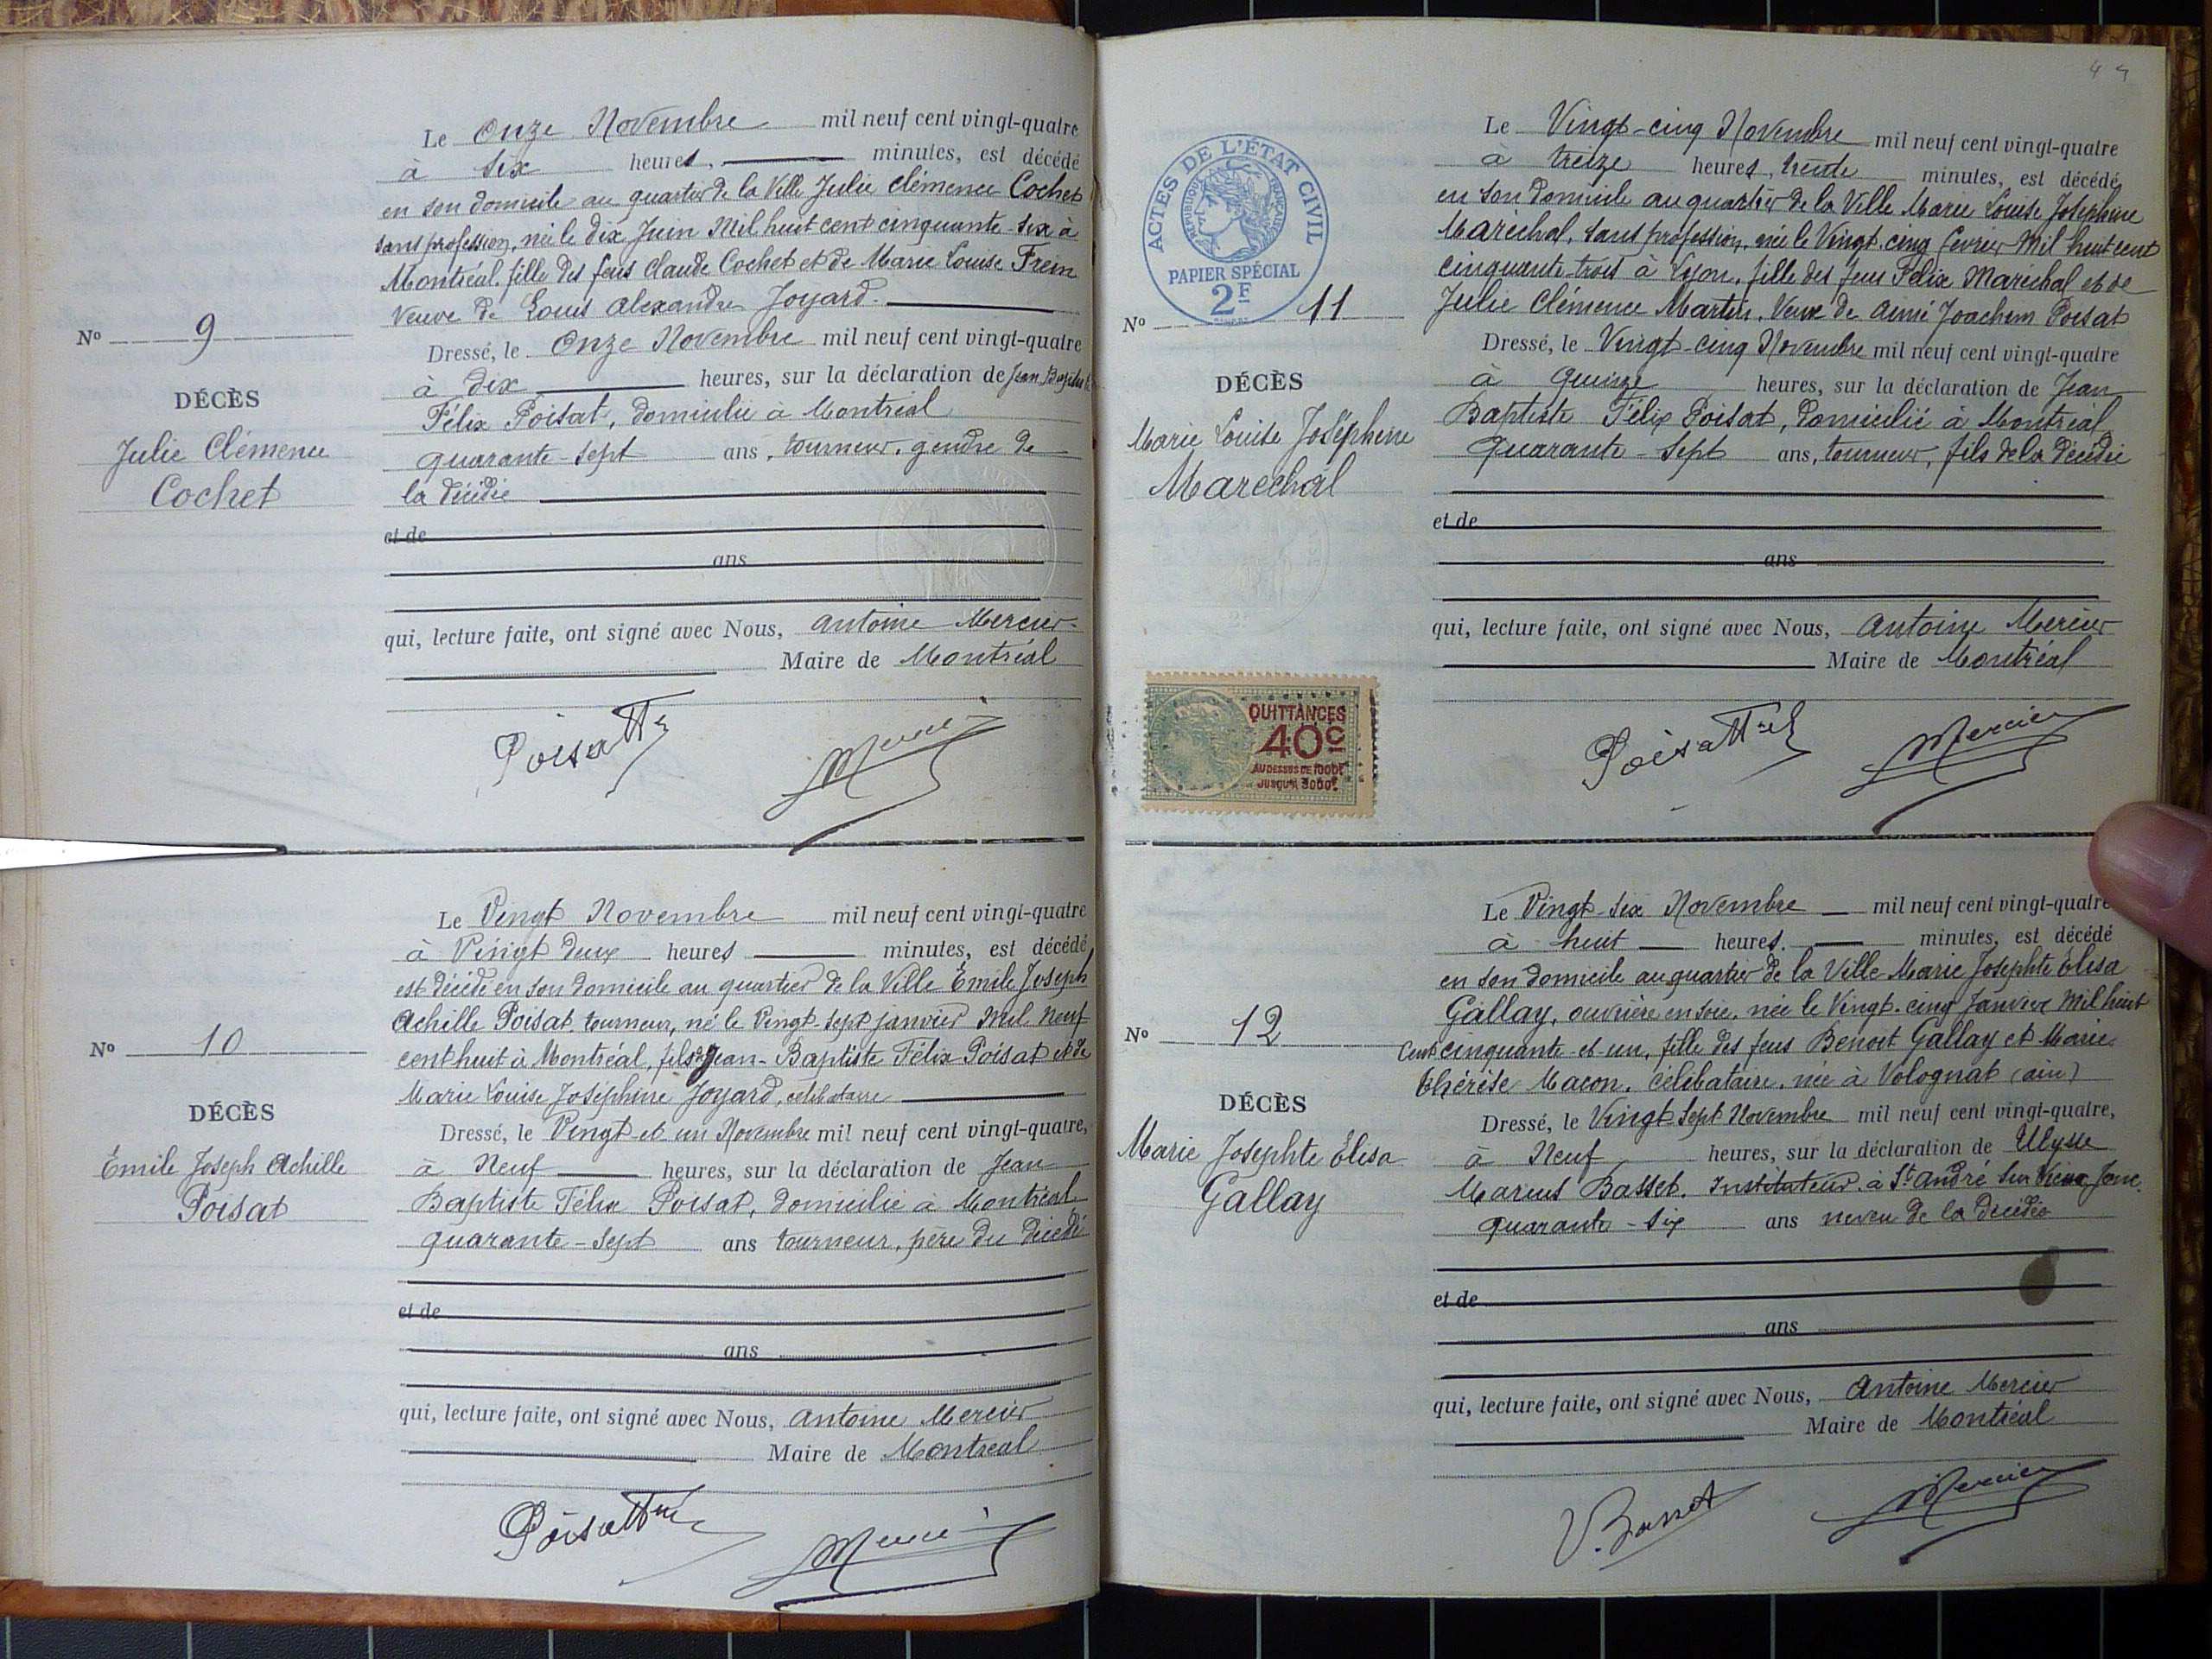 Le Onze Novembre mil neuf cent vingt-quatre
à six heures, minutes, est décédé
en son domicile au quartier de la Ville Julie Clémence Cochet
sans profession, née le dix Juin Mil huit cent cinquante-six à
Montréal, fille des feus Claude Cochet et de Marie Louise Frein
Veuve de Louis Alexandre Joyard.
Nº 9
Dressé, le Onze Novembre mil neuf cent vingt-quatre
à dix heures, sur la déclaration de Jean
DÉCÈS
Félix Poisat, domicilié à Montréal
Julie Clémence
quarante-sept ans, tourneur, gendre de
Cochet
la décédée
et de
ans
qui, lecture faite, ont signé avec Nous, Antoine Mercier
Maire de Montréal
Poisat
Mercier
Le Vingt Novembre mil neuf cent vingt-quatre
à Vingt deux heures minutes, est décédé
est décédé en son domicile au quartier de la Ville Émile Joseph
Achille Poisat, tourneur, né le Vingt-sept janvier Mil neuf
cent huit à Montréal, fils de Jean-Baptiste Félix Poisat et de
Marie Louise Joséphine Joyard, célibataire
Nº 10
Dressé, le Vingt et un Novembre mil neuf cent vingt-quatre,
DÉCÈS
à Neuf heures, sur la déclaration de Jean
Émile Joseph Achille
Baptiste Félix Poisat, domicilié à Montréal
Poisat
quarante-sept ans tourneur, père du décédé
et de
ans
qui, lecture faite, ont signé avec Nous, Antoine Mercier
Maire de Montréal
Poisat
Mercier
44
ACTES DE L'ÉTAT CIVIL
RÉPUBLIQUE FRANÇAISE
PAPIER SPÉCIAL
2F
Le Vingt-cinq Novembre mil neuf cent vingt-quatre
à treize heures, trente minutes, est décédé
en son domicile au quartier de la Ville Marie Louise Joséphine
Maréchal, sans profession, née le Vingt-cinq février Mil huit cent
cinquante-trois à Lyon, fille des feus Félix Maréchal et de
Julie Clémence Martin, Veuve de Aimé Joachim Poisat
Nº 11
Dressé, le Vingt-cinq Novembre mil neuf cent vingt-quatre
à quinze heures, sur la déclaration de Jean
DÉCÈS
Baptiste Félix Poisat, domicilié à Montréal
Marie Louise Joséphine
quarante-sept ans, tourneur, fils de la décédée
Maréchal
et de
ans
qui, lecture faite, ont signé avec Nous, Antoine Mercier
Maire de Montréal
QUITTANCES
40c
AU DESSUS DE 1000F
JUSQU'A 3000F
Poisat
Mercier
Le Vingt-six Novembre mil neuf cent vingt-quatre
à huit heures. minutes, est décédé
en son domicile au quartier de la Ville Marie Josephte Élisa
Gallay, ouvrière en soie, née le Vingt-cinq Janvier Mil huit
Cent cinquante-et-un, fille des feus Benoit Gallay et Marie
thérèse Macon, célibataire, née à Volognat (ain)
Nº 12
Dressé, le Vingt Sept Novembre mil neuf cent vingt-quatre,
DÉCÈS
à Neuf heures, sur la déclaration de Ulysse
Marie Josephte Élisa
Marius Basset, Instituteur à St André sur Vieux Jonc
Gallay
quarante-six ans neveu de la décédée
et de
ans
qui, lecture faite, ont signé avec Nous, Antoine Mercier
Maire de Montréal
Basset
Mercier